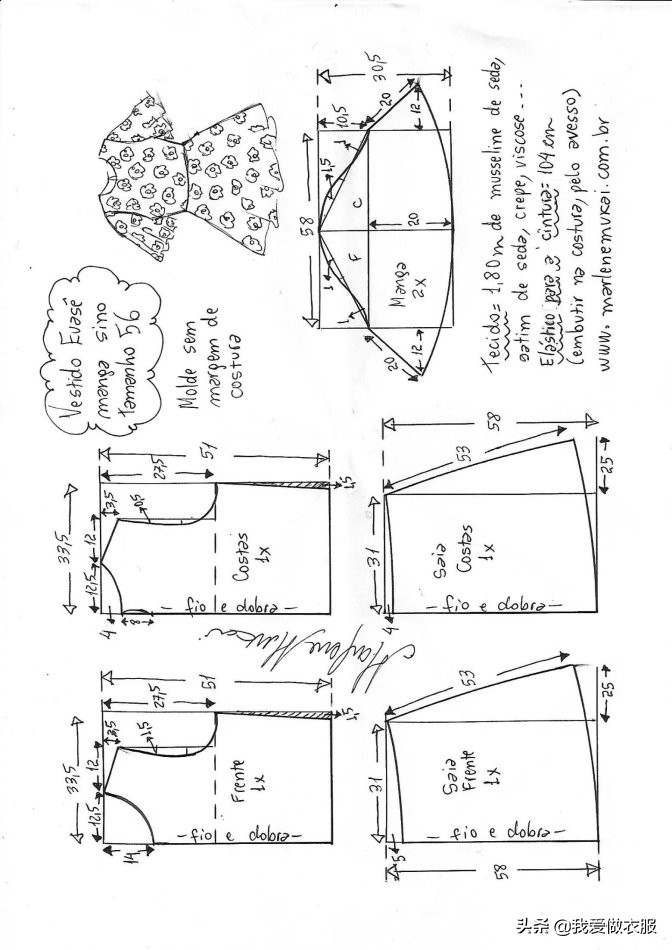 Vestido Evasê
manga sino
tamanho 56
Molde sem
margem de
costura
30,5
10,5
20
12
1
1,5
58
C
F
20
Manga
2x
1
1
20
12
Tecido= 1,80m de musseline de seda,
satim de seda, crepe, viscose...
Elástico para a cintura= 104 cm
(embutir na costura, pelo avesso)
www.marlenemukai.com.br
51
27,5
3,5
0,5
33,5
12
12,5
4
8
1,5
Costas
1x
- fio e dobra -
58
53
25
31
4
Saia
Costas
1x
- fio e dobra -
51
27,5
3,5
1,5
33,5
12
12,5
14
1,5
Frente
1x
- fio e dobra -
53
25
31
5
58
Saia
Frente
1x
- fio e dobra -
Marlene Mukai
头条 @我爱做衣服